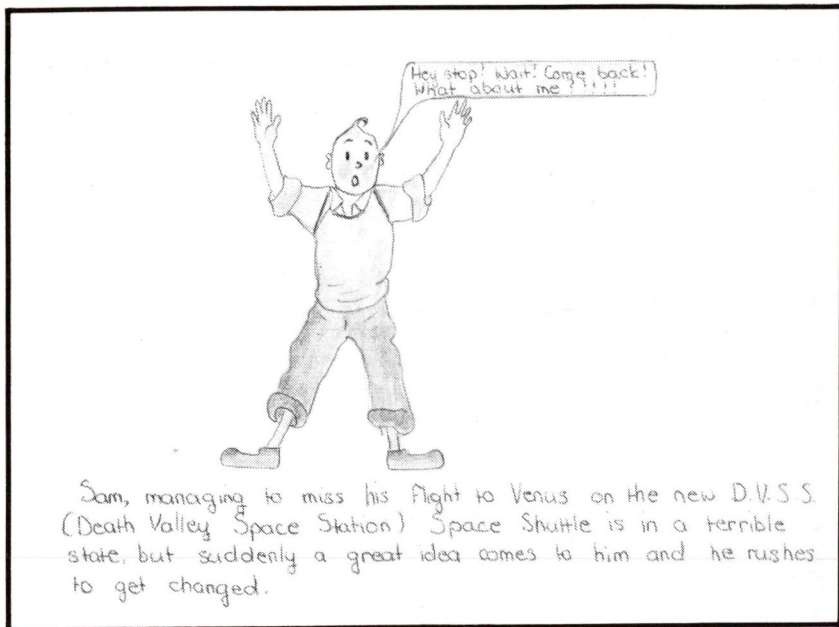 Hey stop! Wait! Come back!
What about me?!!!!
Sam, managing to miss his flight to Venus on the new D.V.S.S.
(Death Valley Space Station) Space Shuttle is in a terrible
state, but suddenly a great idea comes to him and he rushes
to get changed.